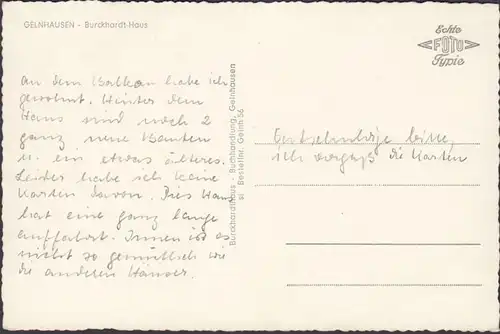 GELNHAUSEN - Burckhardt-Haus
Echte
FOTO
Typie
an dem Balkon habe ich
gewohnt. Hinter dem
Haus sind noch 2
ganz neue Bauten
u. ein etwas älteres.
Leider habe ich keine
Karten davon. Dies Haus
hat eine ganz lange
auffahrt. Innen ist es
nicht so gemütlich wie
die anderen Häuser.
Burckhardthaus - Buchhandlung, Gelnhausen
Bestellnr. Gelnh 56
Entschuldige bitte,
ich vergaß die Karten